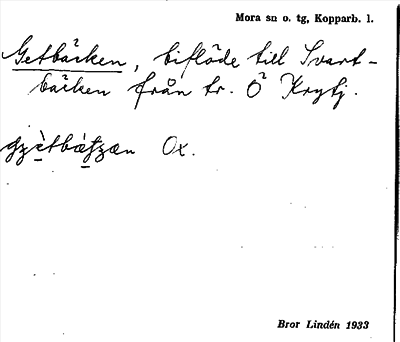 Mora sn o. tg, Kopparb. l.
Getbäcken, biflöde till Svart-
bäcken från tr. Ö Krytj.
Ox.
Bror Lindén 1933